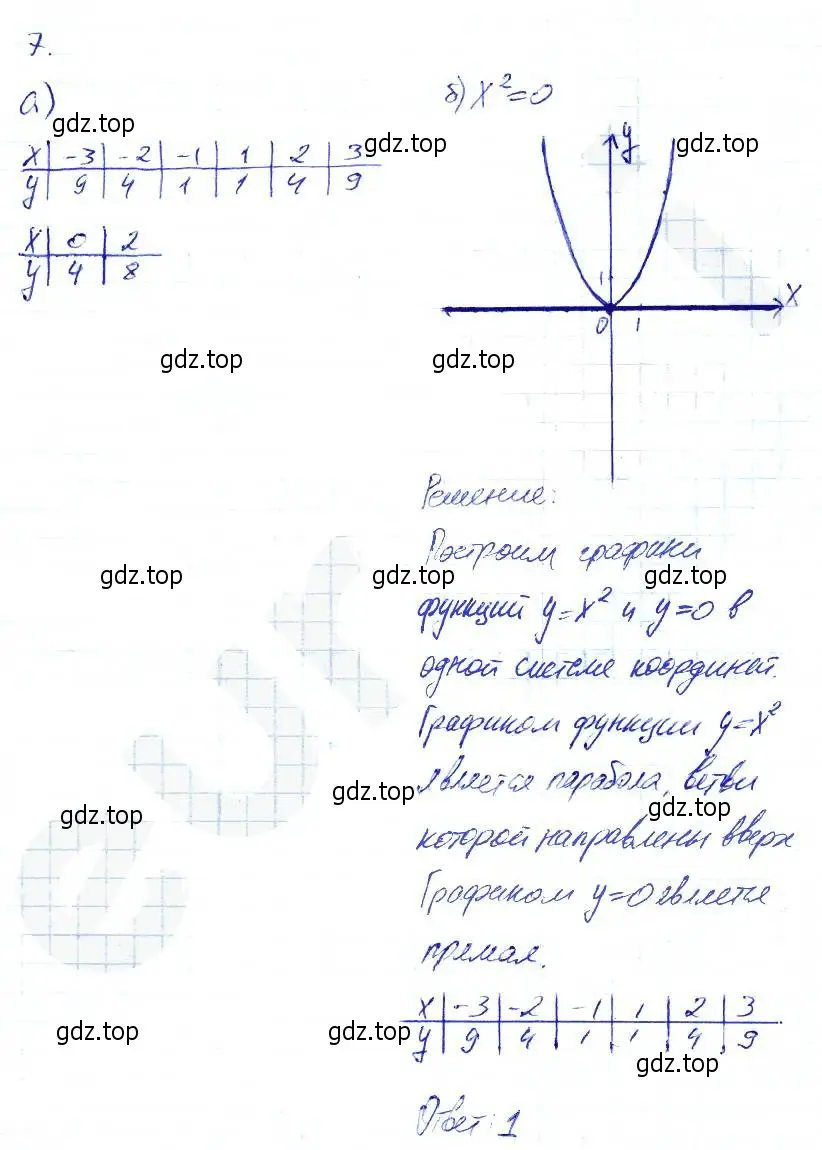 7.
а)
gdz.top
x | -3 | -2 | -1 | 1 | 2 | 3
y | 9 | 4 | 1 | 1 | 4 | 9
x | 0 | 2
y | 4 | 8
б) x²=0
gdz.top
gdz.top
y
1
x
0 1
gdz.top
gdz.top
Решение:
Построим графики
gdz.top
gdz.top
gdz.top
функций y=x² и y=0 в
одной системе координат.
Графиком функции y=x²
является парабола, ветви
gdz.top
gdz.top
gdz.top
которой направлены вверх
Графиком y=0 является
прямая.
x | -3 | -2 | -1 | 1 | 2 | 3
y | 9 | 4 | 1 | 1 | 4 | 9
gdz.top
gdz.top
gdz.top
Ответ: 1
eur